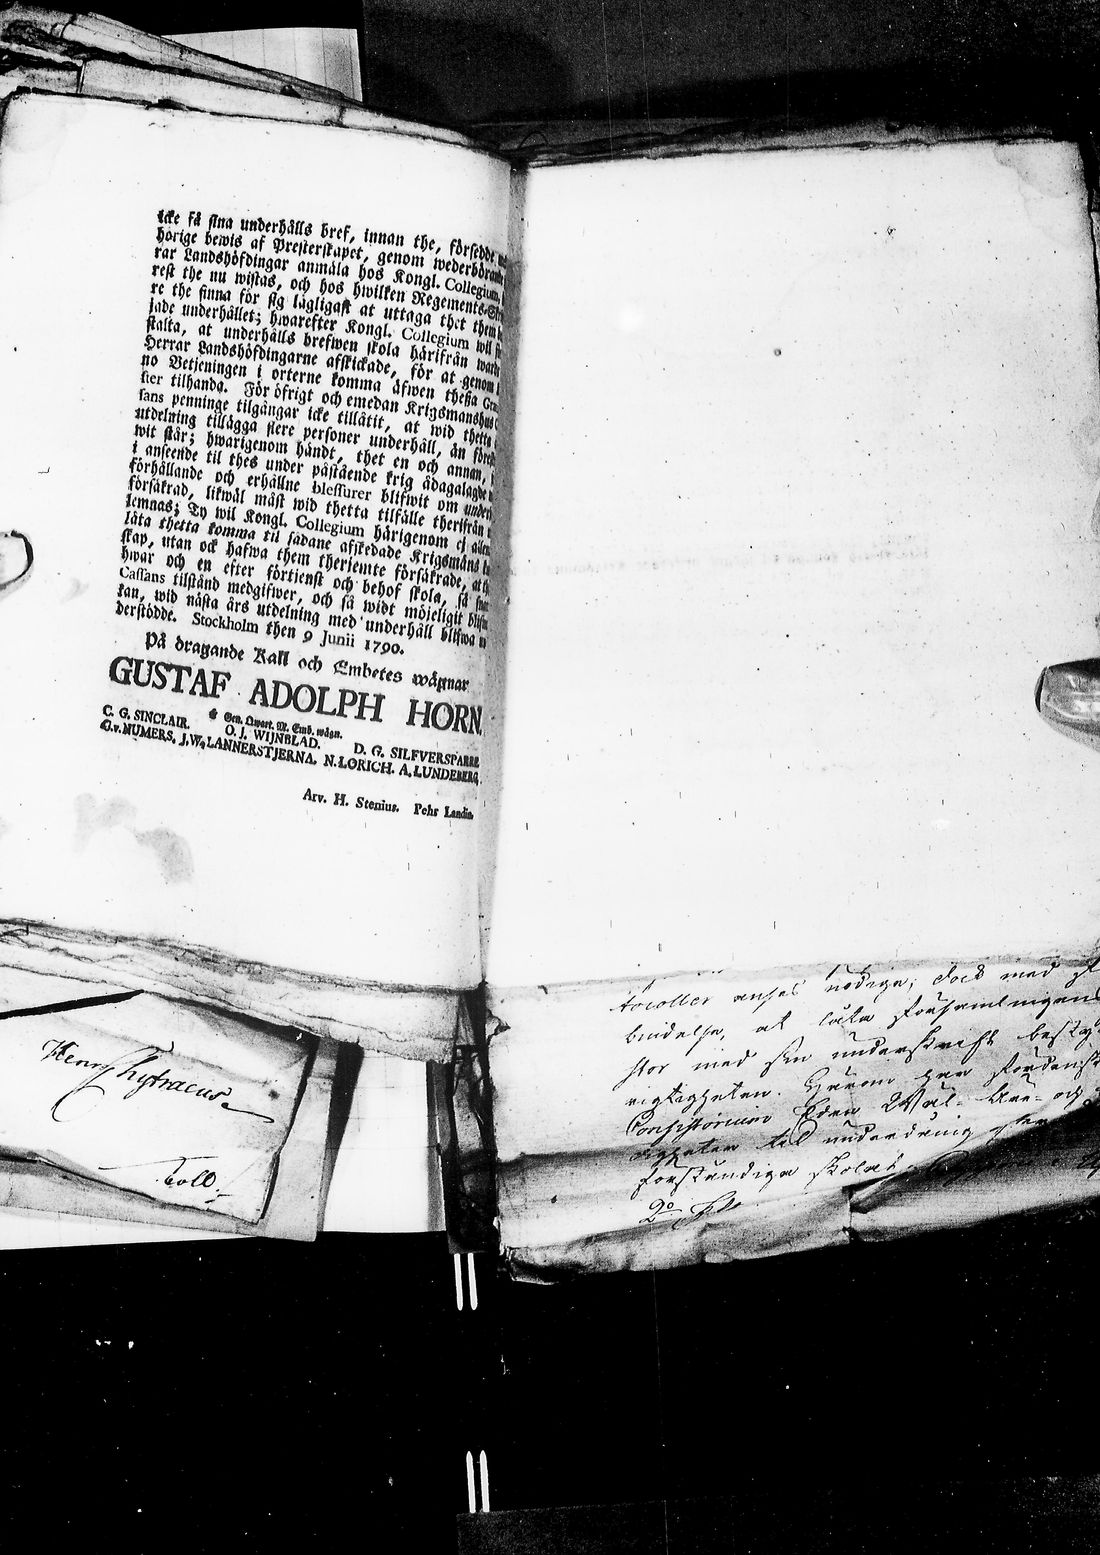 icke få sina underhålls bref, innan the, försedde
hörige bewis af Presterskapet, genom wederbörande
rar Landshöfdingar anmäla hos Kongl. Collegium,
rest the nu wistas, och hos hwilken Regements-
re the finna för sig lägligast at uttaga thet them
jade underhållet; hwarefter Kongl. Collegium wil
stalta, at underhålls brefwen skola härifrån
Herrar Landshöfdingarne afskickade, för at genom
no Betjeningen i orterne komma äfwen thessa
ster tilhanda. För öfrigt och emedan Krigsmanshus
sans penninge tilgångar icke tillåtit, at wid thetta
utdelning tillägga flere personer underhåll, än
wit står; hwarigenom händt, thet en och annan,
i anseende til thes under påstående krig ådagalagde
förhållande och erhållne blessurer blifwit om
försäkrad, likwäl måst wid thetta tilfälle therifrån
lemnas; Ty wil Kongl. Collegium härigenom ej
låta thetta komma til sådane afskedade Krigsmäns
skap, utan ock hafwa them theriemte försäkrade,
hwar och en efter förtjenst och behof skola, så
Cassans tilstånd medgifwer, och så widt möjeligit
kan, wid nästa års utdelning med underhåll blifwa
derstödde. Stockholm then 9 Junii 1790.
På dragande Kall och Embetes wägnar
GUSTAF ADOLPH HORN.
Gen. Qwart. M. Emb. wägn.
C. G. SINCLAIR. O. J. WIJNBLAD. D. G. SILFVERSPARRE
G. v. NUMERS, J. W. LANNERSTJERNA. N. LORICH. A. LUNDEBERG.
Arv. H. Stenius. Pehr Landin.
Henr Kytræus
Coll.
anses nödiga; dock med
bindelse, at låta Församlingens
stor med sin underskrift
rigtigheten. Hwarom
Consistorium Eder Wäl- Äre- och
til underdånig
forständiga skolat
2o